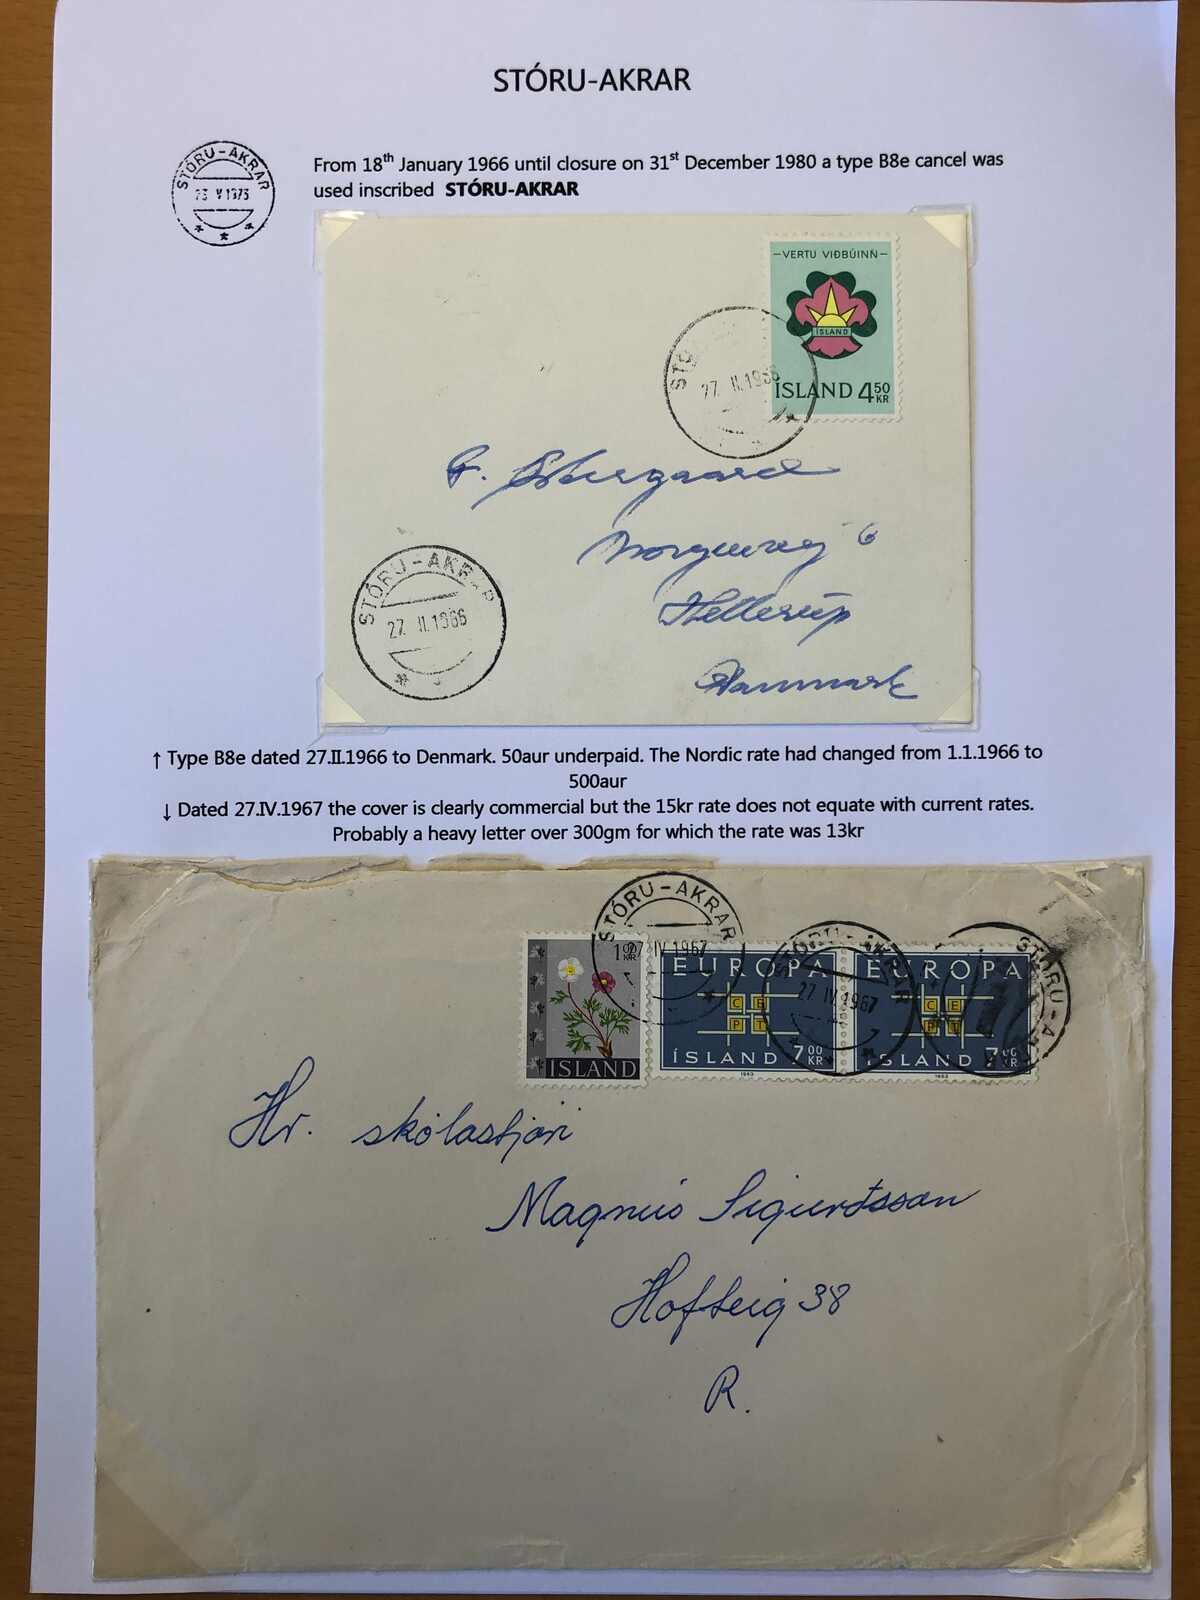 STÓRU-AKRAR
STÓRU-AKRAR
23 V 1973
From 18th January 1966 until closure on 31st December 1980 a type B8e cancel was
used inscribed STÓRU-AKRAR
-VERTU VIÐBÚINN-
ÍSLAND
ÍSLAND 450 KR
STÓ
27. II.1966
Hellerup
Danmark
STÓRU-AKRAR
27. II.1966
↑ Type B8e dated 27.II.1966 to Denmark. 50aur underpaid. The Nordic rate had changed from 1.1.1966 to
500aur
↓ Dated 27.IV.1967 the cover is clearly commercial but the 15kr rate does not equate with current rates.
Probably a heavy letter over 300gm for which the rate was 13kr
STÓRU-AKRAR
27 IV 1967
STÓRU-AKRAR
27 IV 1967
STÓRU-A
100 KR
ÍSLAND
EUROPA
CEPT
ÍSLAND 700 KR
1963
EUROPA
CEPT
ÍSLAND 700 KR
1963
Hr. skólastjóri
Magnús Sigurðsson
Hofteig 38
R.